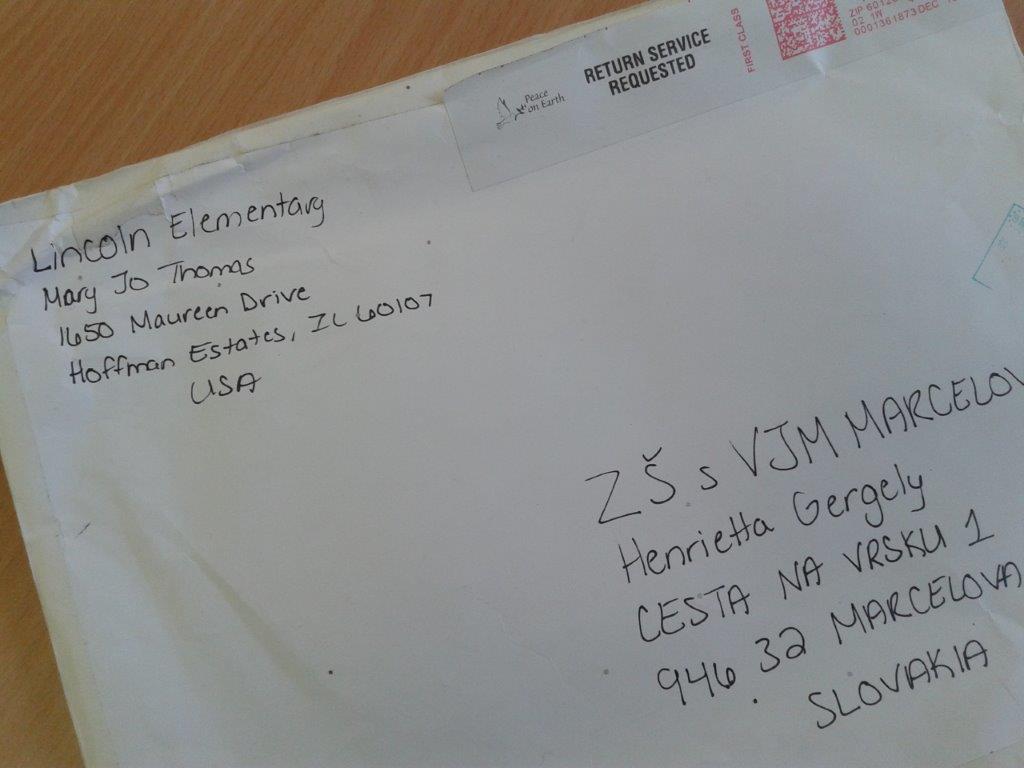 Peace
on Earth
RETURN SERVICE
REQUESTED
FIRST CLASS
02 1W
0001361873 DEC
Lincoln Elementary
Mary Jo Thomas
1650 Maureen Drive
Hoffman Estates, IL 60107
USA
ZŠ s VJM MARCELOV
Henrietta Gergely
CESTA NA VRSKU 1
946 32 MARCELOVA
SLOVAKIA